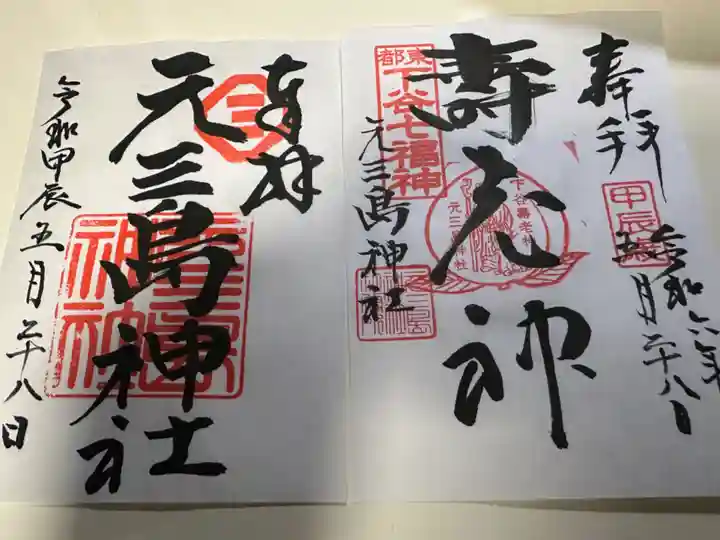 奉拝
甲辰
令和六年
五月二十八日
壽老神
下谷壽老神
元三島神社
東都
下谷七福神
元三島神社
奉拝
三
元三島神社
令和甲辰五月二十八日